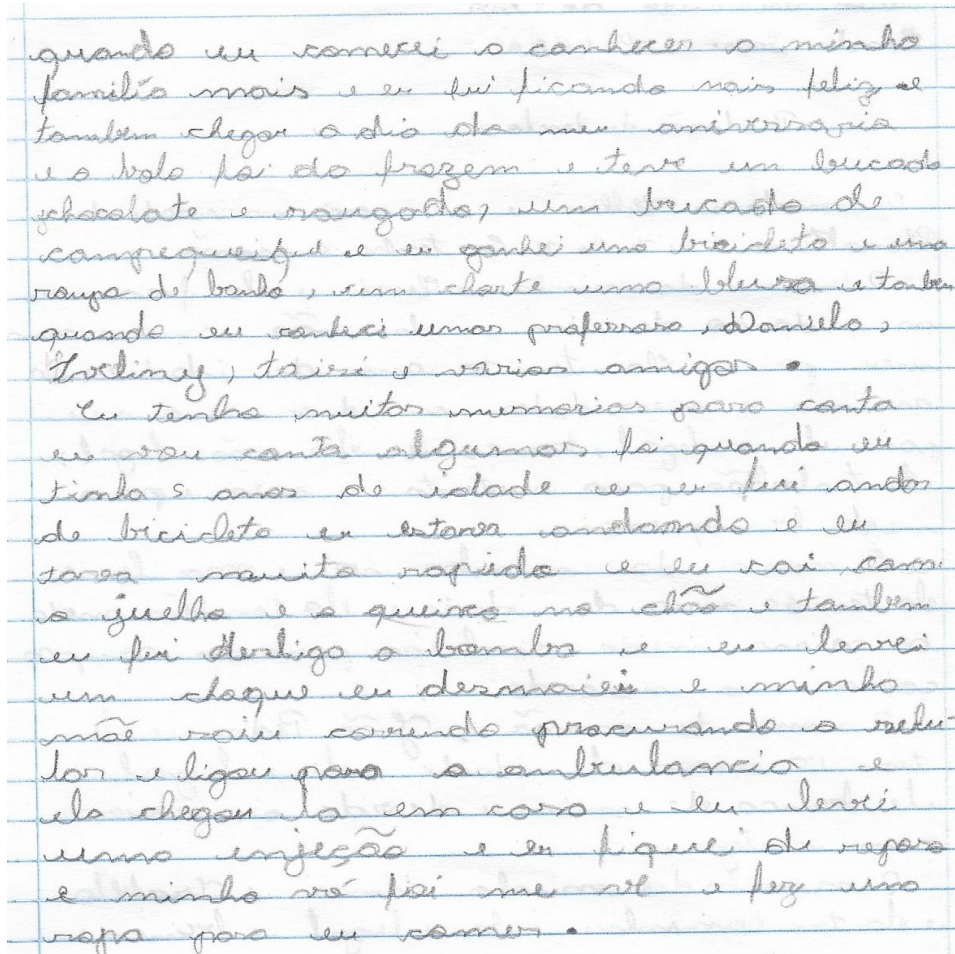 quando eu comecei a conhecer a minha
familía mais e eu fui ficando mais feliz e
tambem chegar o dia do meu aniversario
e o bolo foi do frozem e teve um bucado
chocolate e morgado, um bucado de
e eu ganhei uma bicicleta e uma
roupa de banho, um charte uma blusa e tanbem
quando eu conheci umas professora, Daniela,
e varios amigos.
Eu tenho muitas memorias para conta
eu vou conta algumas foi quando eu
tinha 5 anos de idade e eu fui andar
de bicicleta eu estava andando e eu
tava muito rapido e eu cai com
o juelho e o queixo no chão e tambem
eu fui desligo a bomba e eu levei
um choque eu desmaiei e minha
mãe saiu correndo procurando o selu-
lar e ligou para a anbulancia e
ela chegou la em casa e eu levei
uma enjeção e eu fiquei de reposo
e minha vó foi me ve e fez uma
sopa para eu comer.